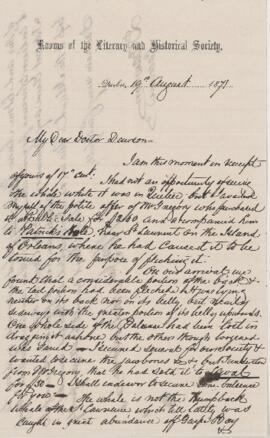 Rooms of the Literary and Historical Society.
Quebec 19th August 1871
My Dear Doctor Dawson
I am this moment in receipt
of yours of 17th inst. I had not an opportunity of seeing
the whale while it was in Quebec, but I availed
myself of the polite offer of Mr Gregory who purchased
it at the Sale for $240, and accompanied him
to Patrick's Hole, near St Laurent on the Island
of Orleans, where he had caused it to be
towed for the purpose of flecking it.
On our arrival we
found that a considerable portion of the back &
the tail portion had been flecked. It was lying
neither on its back nor on its belly, but
sideways with the greater portion of its belly upwards.
One whole side of the Baleen had been lost in
dragging it ashore but the other though
was
wanted to secure the jawbones &c. but
from Mr Gregory, that he had sold it to
for $50 — I shall endeavor to secure some baleen
for you — The whale is not the Humpback
whale of the St Lawrence which till lately was
caught in great abundance off Gaspé Bay
&c